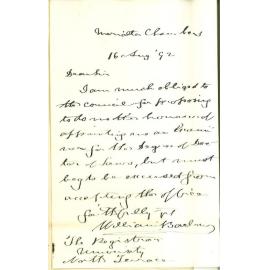 Chambers
16 Aug '92
Dear Sir
I am much obliged to
the council for proposing
to do me the honour of
appointing me an Exami-
ner for the Degree of Doc-
tor of Laws, but must
beg to be excused from
accepting the office
faithfully yrs
William
The Registrar
University
North Terrace